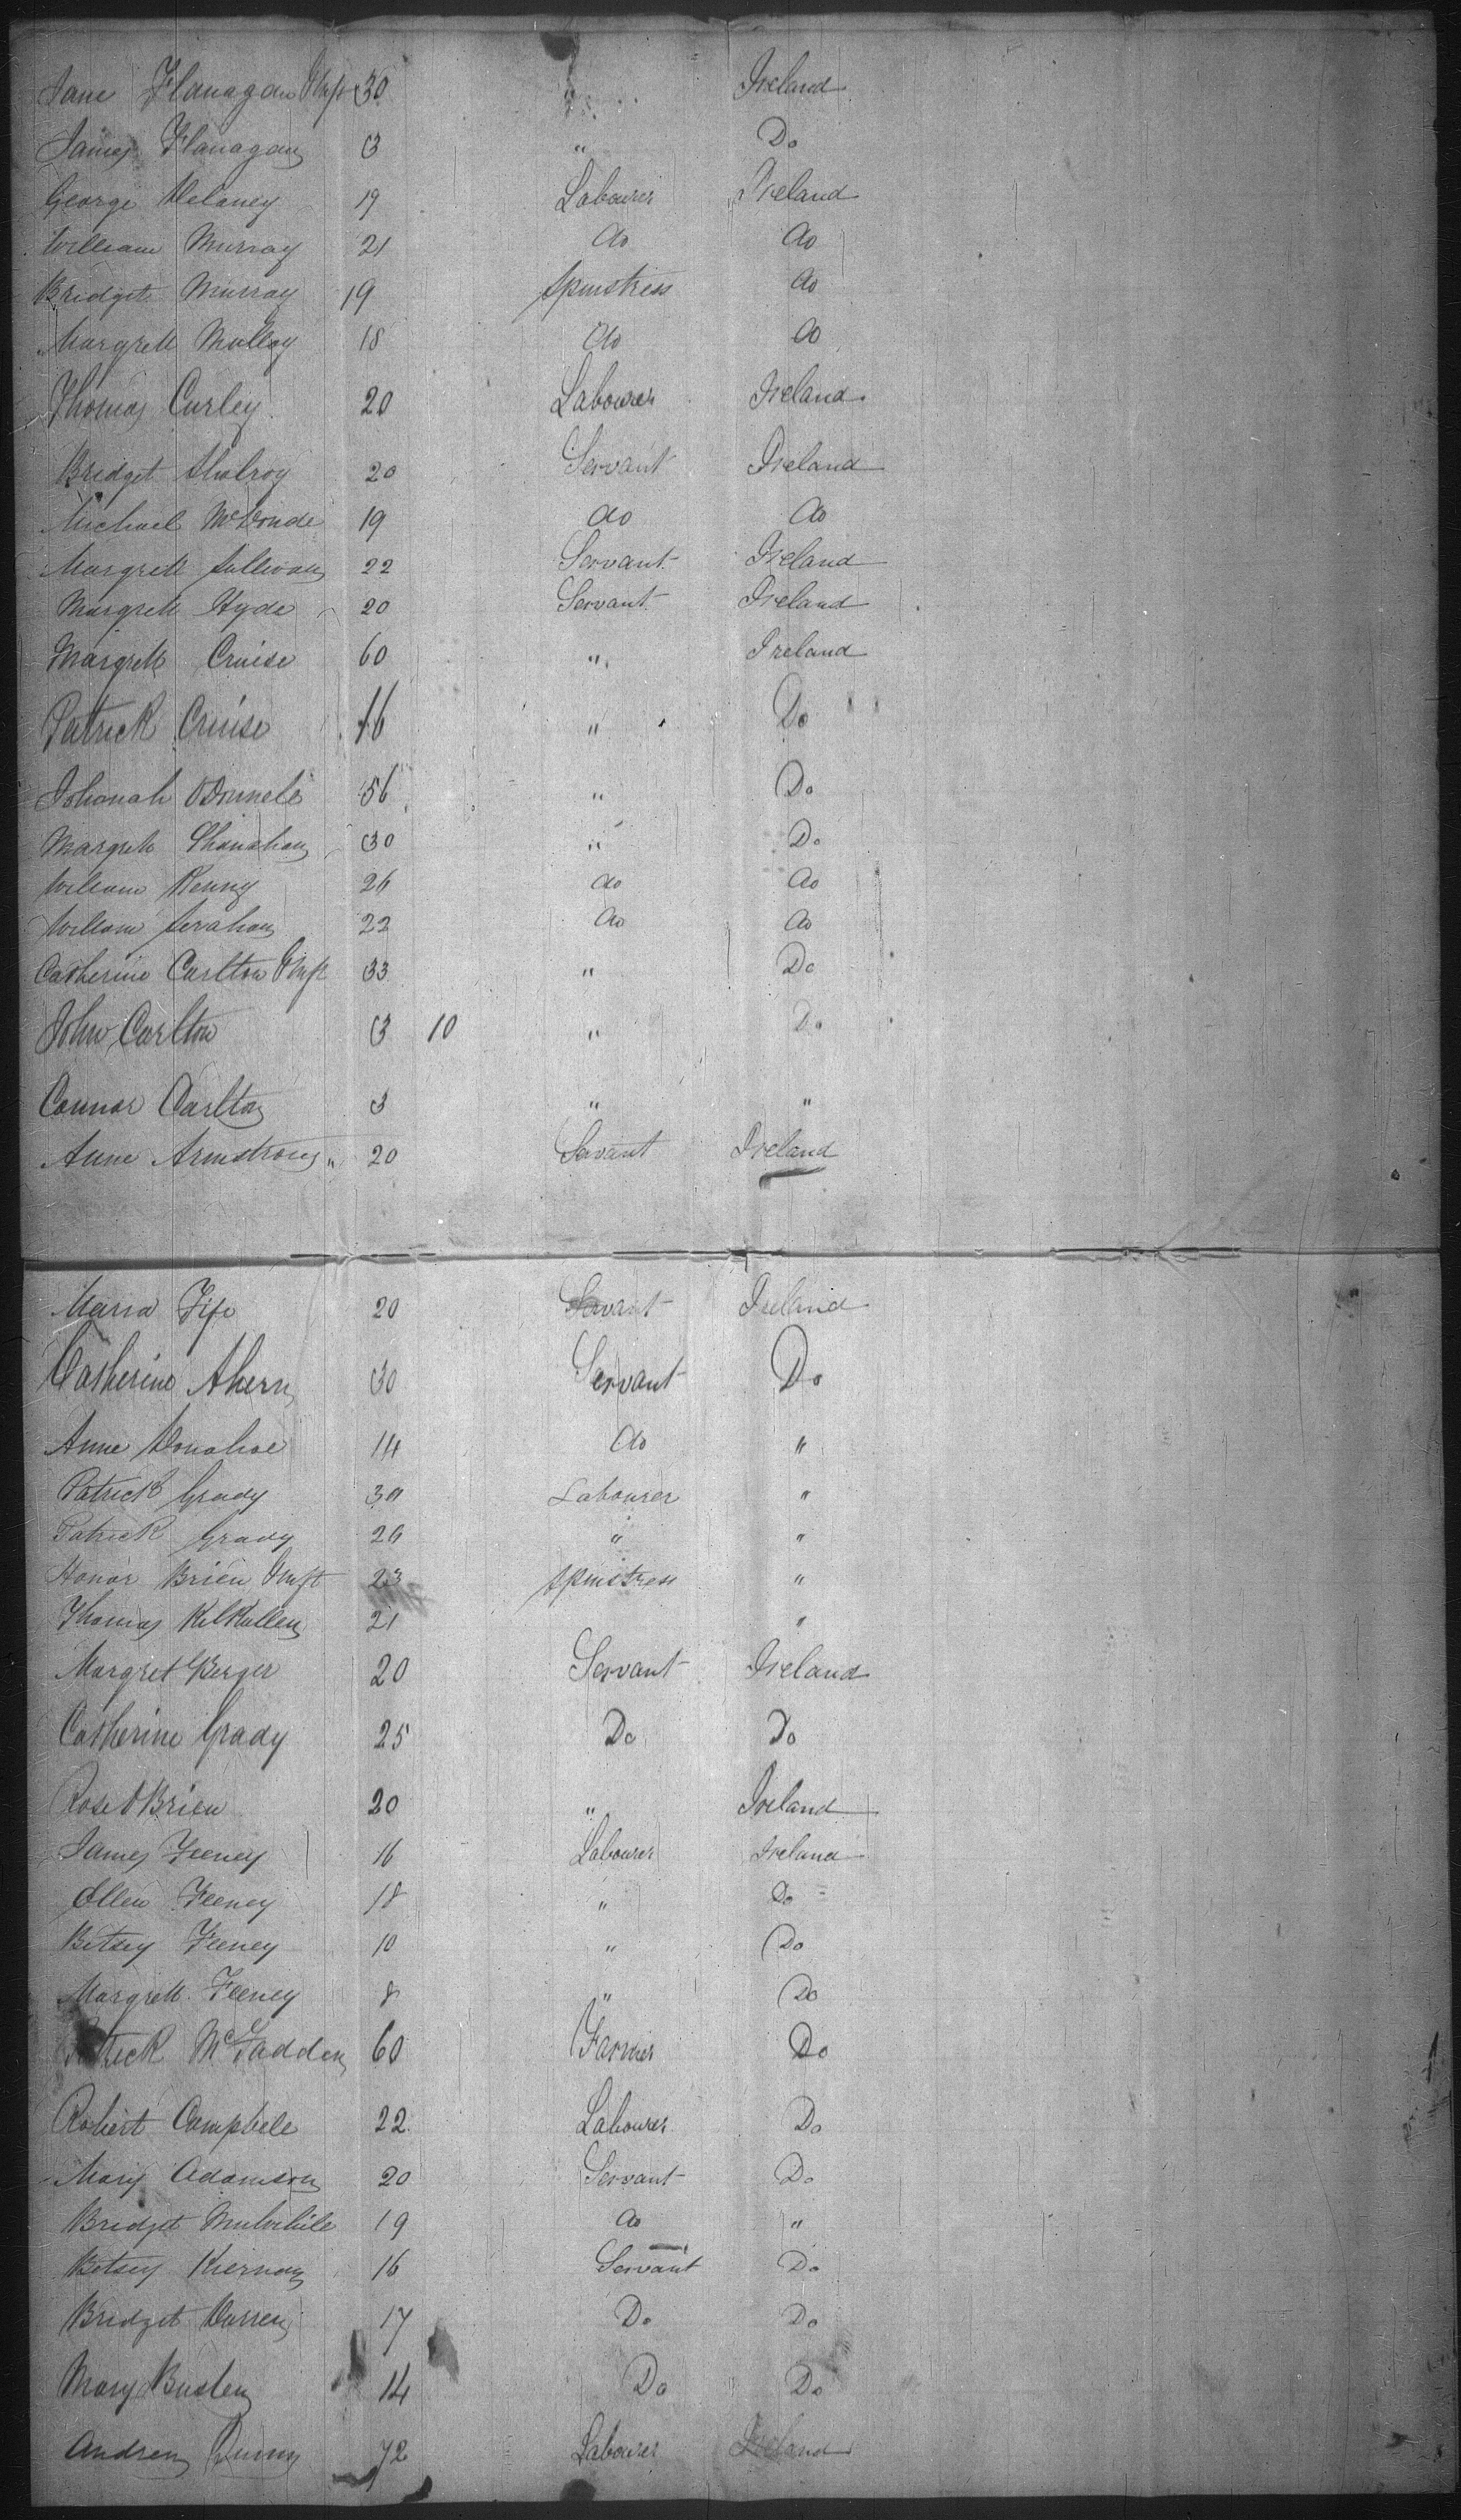 Jane Flanagan & Inft 30 " Ireland
James Flanagan 3 " Do
George Delaney 19 Labourer Ireland
William Murray 21 do do
Bridget Murray 19 Spinstress do
Margrett Mullay 18 do do
Thomas Curley 20 Labourer Ireland
Bridget 20 Servant Ireland
Michael 19 do do
Margrett Sullivan 22 Servant Ireland
Margrett Hyde 20 Servant Ireland
Margrett Cruise 60 " Ireland
Patrick Cruise 16 " Do
Johanah ODonnele 56 " Do
Margrett Shanahan 30 " Do
William Kenny 26 do do
William 22 do do
Catherine Carlton & Inft 33 " Do
John Carlton 3 10 " Do
Connor Carlton 3 " "
Anne Armstrong " 20 Servant Ireland
Maria Fife 20 Servant Ireland
Catherine Ahern 30 Servant Do
Anne Donahoe 14 do "
Patrick Grady 30 Labourer "
Patrick Grady 26 " "
Honor Brien & Inft 23 Spinstress "
Thomas Kilkullen 21 "
Margret 20 Servant Ireland
Catherine Grady 25 Do Do
Rose OBrien 20 " Ireland
James Feeney 16 Labourer Ireland
Ellen Feeney 18 " Do
Betsey Feeney 10 " Do
Margrett Feeney 8 " Do
Patrick McFadden 60 Farmer Do
Robert Campbele 22 Labourer Do
Mary Adamson 20 Servant Do
Bridget Mulvihile 19 do "
Betsey Kiernan 16 Servant Do
Bridget 17 Do Do
Mary 14 Do Do
Andrew Dunn 72 Labourer Ireland